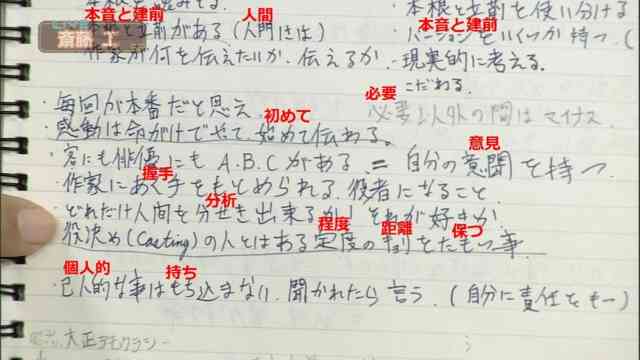 本音と建前 人間 本音と建前
斎藤 工
本根と立前を使い分ける
立前がある(人門さは)
・バージョンをいくつか持つ。(
作家が何を伝えたいか、伝えるか、現実的に考える。
こだわる。
・毎回が本番だと思え 必要
必要以外の間はマイナス
初めて
感動は命がけでやって、始めて伝わる。
意見
・客にも俳優にもA.B.Cがある = 自分の意聞を持つ。
握手
・作家にあく手をもとめられる。役者になること
分析
・どれだけ人間を分せきを出来るか!それが好きか
程度 距離 保つ
・役決め(Casting)の人とはある定度のキョリをたもつ事。
個人的 持ち
・己人的な事はもち込まない。聞かれたら言う。(自分に責任をもー)
大正デモクラシー